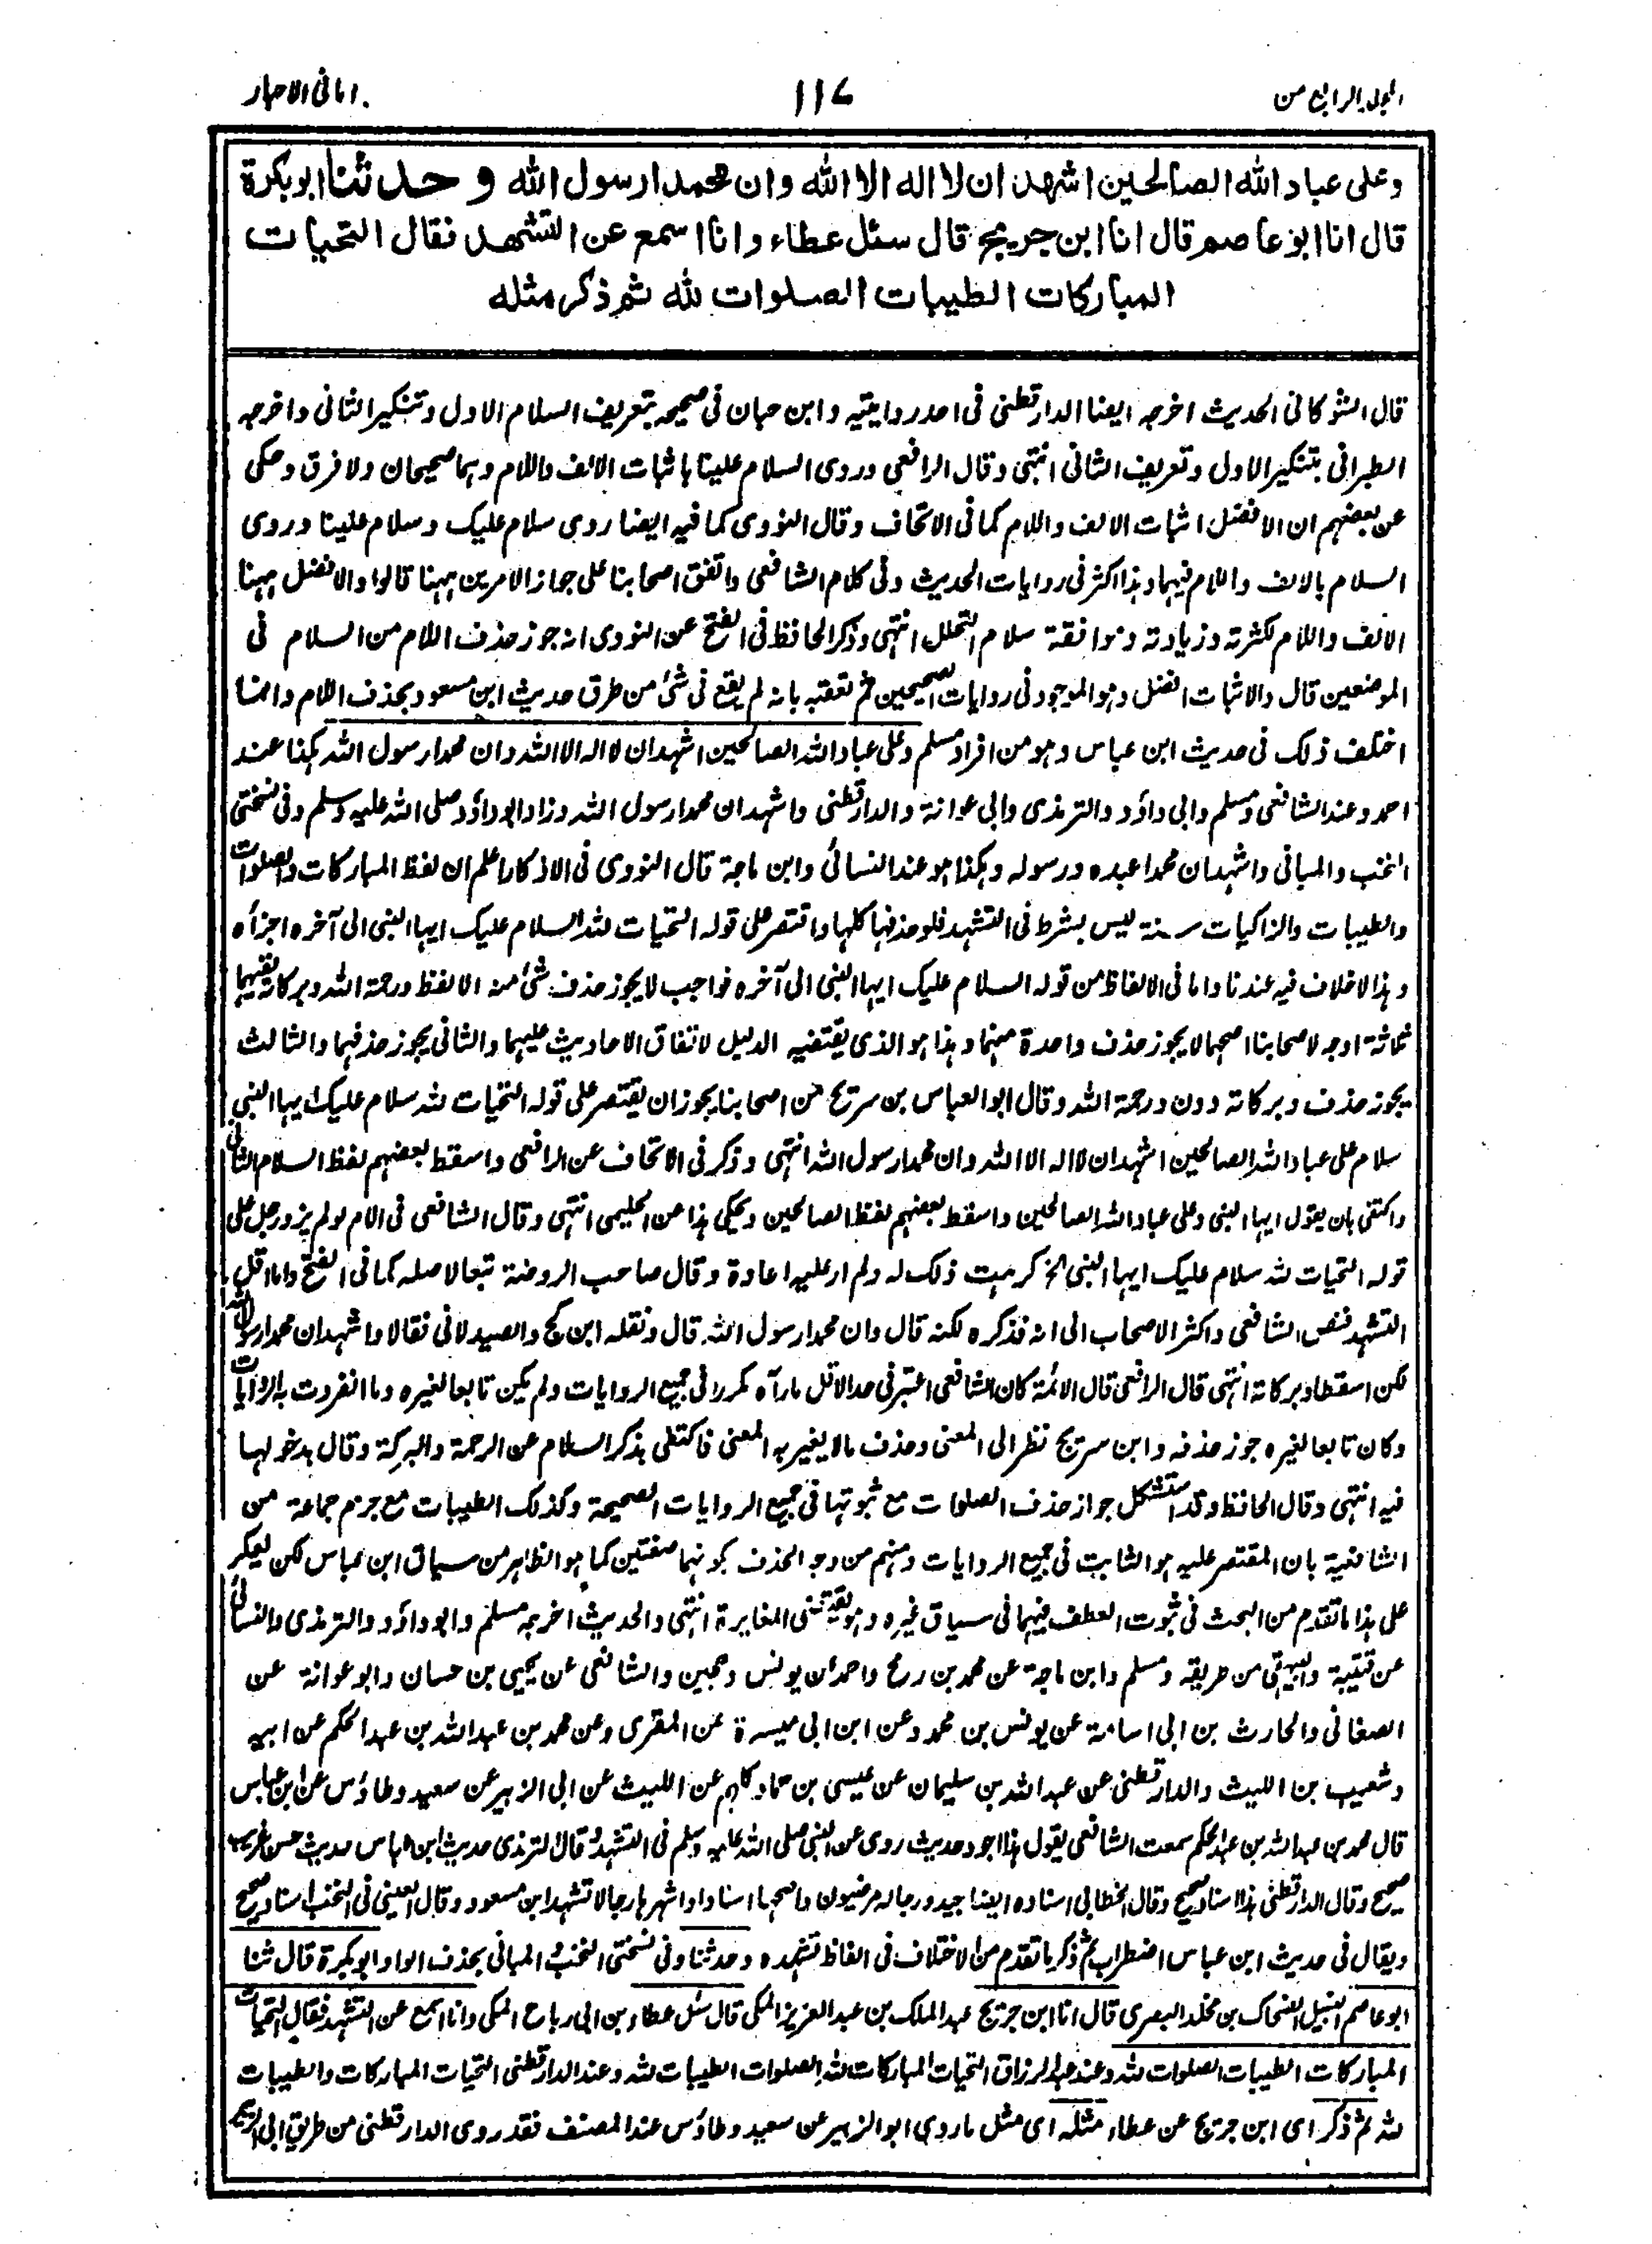 المجلد الرابع من
١١٧
امانى الاحبار
وعلى عباد الله الصالحين اشهد ان لا اله الا الله وان محمدا رسول الله وحدثنا ابو بكرة
قال انا ابو عاصم قال انا ابن جريج قال سئل عطاء وانا اسمع عن التشهد فقال التحيات
المباركات الطيبات الصلوات لله ثم ذكر مثله
قال الشوكانى الحديث اخرجه ايضا الدارقطنى فى احدى روايتيه وابن حبان فى صحيحه بتعريف السلام الاول وتنكير الثانى واخرجه
الطبرانى بتنكير الاول وتعريف الثانى انتهى وقال الرافعى وروى السلام علينا باثبات الالف واللام وهما صحيحان ولا فرق وحكى
عن بعضهم ان الافضل اثبات الالف واللام كما فى الاتحاف وقال النووى كما فيه ايضا روى سلام عليك وسلام علينا وروى
السلام بالالف واللام فيهما وهذا اكثر فى روايات الحديث وفى كلام الشافعى واتفق اصحابنا على جواز الامرين ههنا قالوا والافضل ههنا
الالف واللام لكثرته وزيادته وموافقة سلام التحلل انتهى وذكر الحافظ فى الفتح عن النووى انه جوز حذف اللام من السلام فى
الموضعين قال والاثبات افضل وهو الموجود فى روايات الصحيحين ثم تعقبه بانه لم يقع فى شئ من طرق حديث ابن مسعود بحذف اللام وانما
اختلف ذلك فى حديث ابن عباس وهو من افراد مسلم وعلى عباد الله الصالحين اشهد ان لا اله الا الله وان محمدا رسول الله هكذا عند
احمد وعند الشافعى ومسلم وابى داؤد والترمذى وابى عوانة والدارقطنى واشهد ان محمدا رسول الله وزاد ابو داؤد صلى الله عليه وسلم وفى نسختى
النخب والمبانى واشهد ان محمدا عبده ورسوله وهكذا هو عند النسائى وابن ماجة قال النووى فى الاذكار اعلم ان لفظ المباركات والصلوات
والطيبات والزاكيات سنة ليس بشرط فى التشهد فلو حذفها كلها واقتصر على قوله التحيات لله السلام عليك ايها النبى الى آخره اجزأه
وهذا لا خلاف فيه عندنا واما فى الالفاظ من قوله السلام عليك ايها النبى الى آخره فواجب لا يجوز حذف شئ منه الا لفظ ورحمة الله وبركاته ففيهما
ثلاثة اوجه لاصحابنا اصحها لا يجوز حذف واحدة منهما وهذا هو الذى يقتضيه الدليل لاتفاق الاحاديث عليهما والثانى يجوز حذفهما والثالث
يجوز حذف وبركاته دون ورحمة الله وقال ابو العباس بن سريج من اصحابنا يجوز ان يقتصر على قوله التحيات لله سلام عليك ايها النبى
سلام على عباد الله الصالحين اشهد ان لا اله الا الله وان محمدا رسول الله انتهى وذكر فى الاتحاف عن الرافعى واسقط بعضهم لفظ السلام الثانى
واكتفى بان يقول ايها النبى وعلى عباد الله الصالحين واسقط بعضهم لفظ الصالحين ويحكى هذا عن الحليمى انتهى وقال الشافعى فى الام لو لم يزد رجل على
قوله التحيات لله سلام عليك ايها النبى الخ كرهت ذلك له ولم ار عليه اعادة وقال صاحب الروضة تبعا لاصله كما فى الفتح واما اقل
التشهد فنص الشافعى واكثر الاصحاب الى انه فذكره لكنه قال وان محمدا رسول الله قال ونقله ابن كج والصيدلانى فقالا واشهد ان محمدا رسول الله
لكن اسقطا وبركاته انتهى قال الرافعى قال الائمة كان الشافعى اعتبر فى حد الاقل ما رآه مكررا فى جميع الروايات ولم يكن تابعا لغيره وما انفردت به الروايات
وكان تابعا لغيره جوز حذفه وابن سريج نظر الى المعنى وحذف ما لا يغير به المعنى فاكتفى بذكر السلام عن الرحمة والبركة وقال بدخولهما
فيه انتهى وقال الحافظ وقد استشكل جواز حذف الصلوات مع ثبوتها فى جميع الروايات الصحيحة وكذلك الطيبات مع جزم جماعة من
الشافعية بان المقتصر عليه هو الثابت فى جميع الروايات ومنهم من وجه الحذف بكونهما صفتين كما هو الظاهر من سياق ابن عباس لكن يعكر
على هذا ما تقدم من البحث فى ثبوت العطف فيهما فى سياق غيره وهو يقتضى المغايرة انتهى والحديث اخرجه مسلم وابو داؤد والترمذى والنسائى
عن قتيبة والبيهقى من طريقه ومسلم وابن ماجة عن محمد بن رمح واحمد عن يونس وحجين والشافعى عن يحيى بن حسان وابو عوانة عن
الصغانى والحارث بن ابى اسامة عن يونس بن محمد وعن ابن ابى ميسرة عن المقرى وعن محمد بن عبدالله بن عبدالحكم عن ابيه
وشعيب بن الليث والدارقطنى عن عبدالله بن سليمان عن عيسى بن حماد كلهم عن الليث عن ابى الزبير عن سعيد وطاؤس عن ابن عباس
قال محمد بن عبدالله بن عبدالحكم سمعت الشافعى يقول هذا اجود حديث روى عن النبى صلى الله عليه وسلم فى التشهد وقال الترمذى حديث ابن عباس حديث حسن غريب
صحيح وقال الدارقطنى هذا اسناد صحيح وقال الخطابى اسناده ايضا جيد ورجاله مرضيون واصحها اسنادا واشهرها رجالا تشهد ابن مسعود وقال العينى فى النخب اسناد صحيح
ويقال فى حديث ابن عباس اضطراب ثم ذكر ما تقدم من الاختلاف فى الفاظ تشهده وحدثنا وفى نسختى النخب والمبانى بحذف الواو ابو بكرة قال ثنا
ابو عاصم النبيل الضحاك بن مخلد البصرى قال انا ابن جريج عبد الملك بن عبد العزيز المكى قال سئل عطاء بن ابى رباح المكى وانا اسمع عن التشهد فقال التحيات
المباركات الطيبات الصلوات لله وعند عبد الرزاق التحيات المباركات لله الصلوات الطيبات لله وعند الدارقطنى التحيات المباركات والطيبات
لله ثم ذكر اى ابن جريج عن عطاء مثله اى مثل ما روى ابو الزبير عن سعيد وطاؤس عند المصنف فقد روى الدارقطنى من طريق ابى